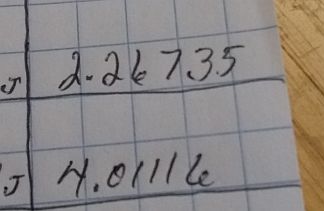 J 2.26735
J 4.01116